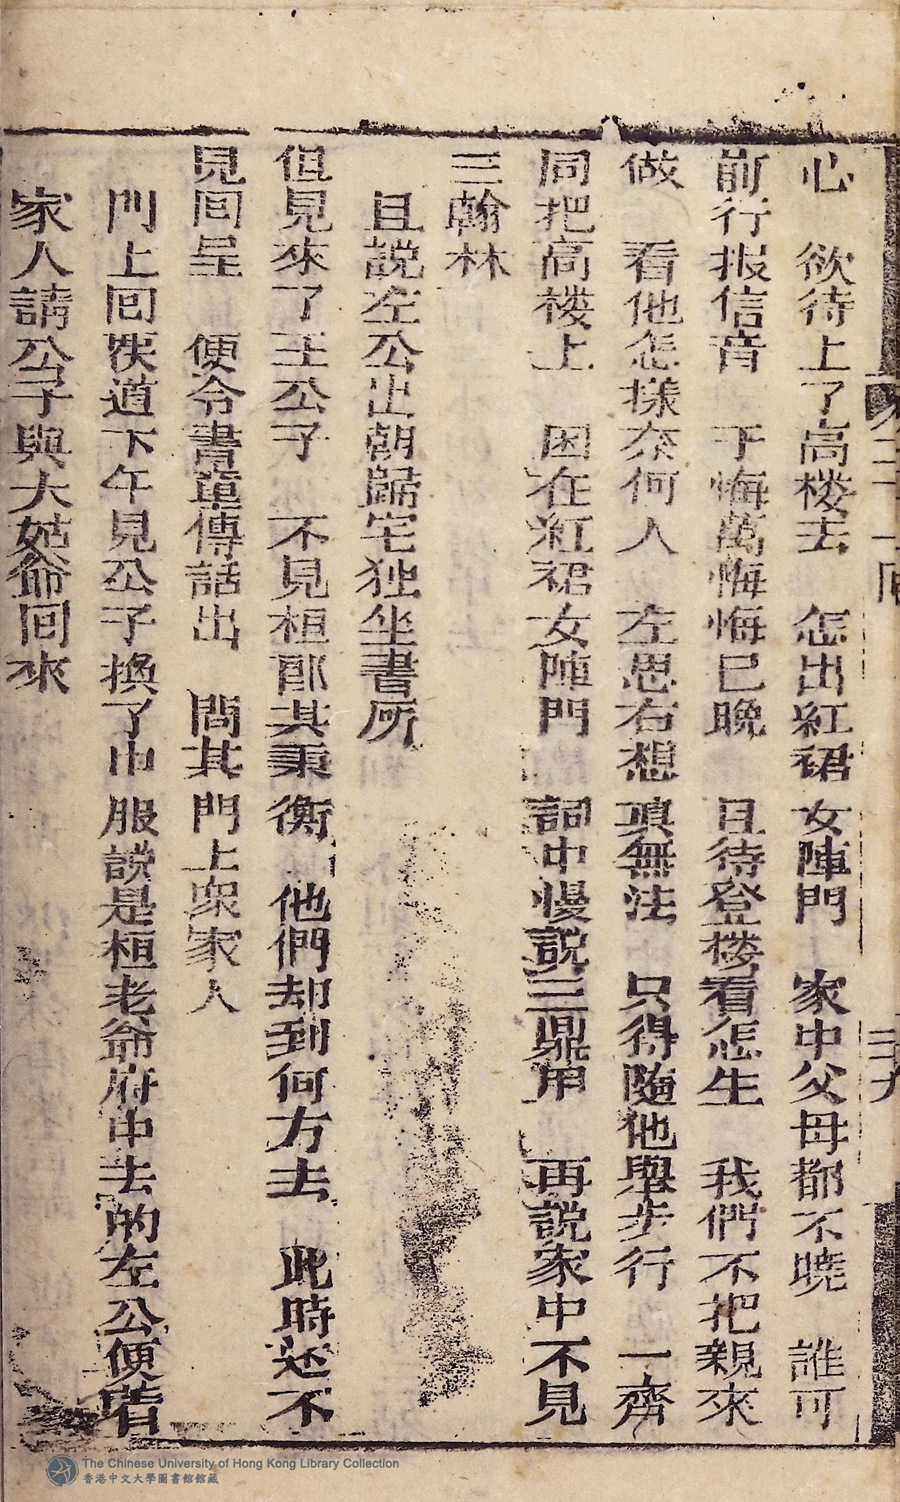 心　欲待上了高楼去　怎出紅裙女陣門　家中父母都不曉　誰可
前行报信音　千悔萬悔悔已晚　且待登楼看怎生　我們不把親來
做　看他怎樣奈何人　左思右想真無法　只得随他舉步行　一齊
同把高楼上　困在紅裙女陣門　詞中慢説三鼎甲　再説家中不見
三翰林
且説左公出朝歸宅独坐書房
但見來了王公子　不見桓郎共秉衡　他們却到何方去　此時还不
見回呈　便令書童傳話出　問其門上衆家人
門上回禀道下午見公子換了巾服説是桓老爺府中去的左公便着
家人請公子與大姑爺回來
二十一回
三九
The Chinese University of Hong Kong Library Collection
香港中文大學圖書館館藏